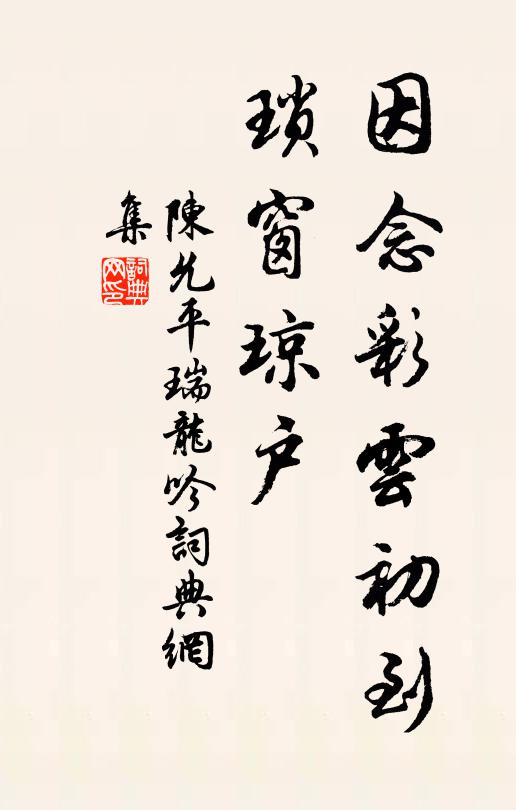 因念彩雲初到
瑣窗琼戶
陳允平瑞龍吟詞典網
集
詞典
网印